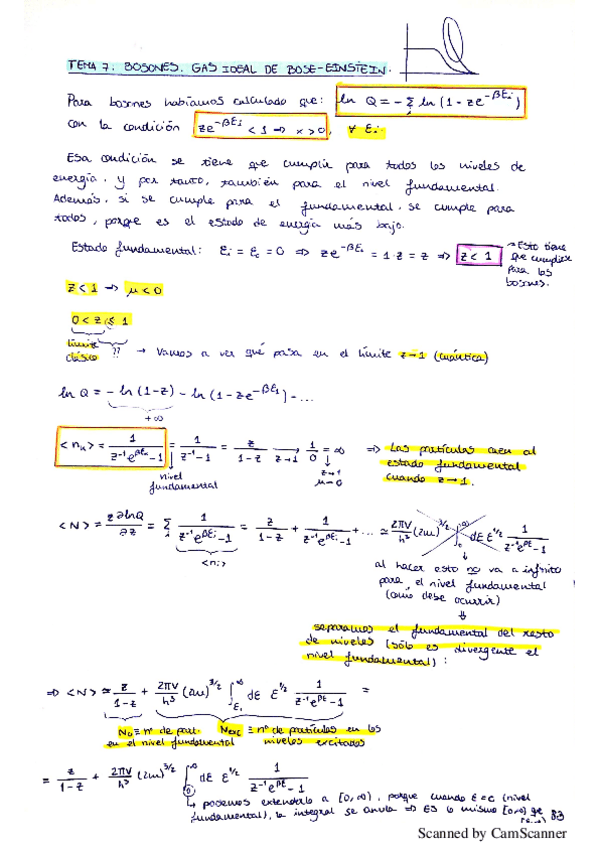 TEMA 7: BOSONES. GAS IDEAL DE BOSE-EINSTEIN.
Para bosones habíamos calculado que: ln Q = - Σ_i ln (1 - ze^{-βE_i})
con la condición ze^{-βE_i} < 1 ⇒ x > 0, ∀ E_i.
Esa condición se tiene que cumplir para todos los niveles de
energía. y por tanto, también para el nivel fundamental.
Además, si se cumple para el fundamental, se cumple para
todos, porque es el estado de energía más bajo.
Estado fundamental: E_i = E_0 = 0 ⇒ ze^{-βE_i} = 1·z = z ⇒ z < 1
→ Esto tiene
que cumplirse
para los
bosones.
z < 1 → μ < 0
0 < z ≤ 1
límite
clásico
?? → Vamos a ver qué pasa en el límite z→1 (cuántica)
ln Q = - ln (1-z) - ln (1 - ze^{-βE_1}) - ...
+∞
<n_k> = 1/(z^{-1}e^{βE_k} - 1) = 1/(z^{-1} - 1) = z/(1-z) →_{z→1} 1/0 = ∞ ⇒ Las partículas caen al
estado fundamental
cuando z→1.
↓ nivel
fundamental
↓ z→1
μ→0
<N> = z∂lnQ/∂z = Σ_i 1/(z^{-1}e^{βE_i} - 1) = z/(1-z) + 1/(z^{-1}e^{βE_1} - 1) + ... ≃ 2πV/h³ (2m)^{3/2} ∫_0^∞ dE E^{1/2} 1/(z^{-1}e^{βE} - 1)
<n_i>
al hacer esto no va a infinito
para el nivel fundamental
(como debe ocurrir)
⇓
separamos el fundamental del resto
de niveles (sólo es divergente el
nivel fundamental):
⇒ <N> ≃ z/(1-z) + 2πV/h³ (2m)^{3/2} ∫_{E_1}^∞ dE E^{1/2} 1/(z^{-1}e^{βE} - 1) =
N_0 ≡ nº de part.
en el nivel fundamental
N_exc ≡ nº de partículas en los
niveles excitados
= z/(1-z) + 2πV/h³ (2m)^{3/2} ∫_0^∞ dE E^{1/2} 1/(z^{-1}e^{βE} - 1)
↳ podemos extenderlo a [0,∞), porque cuando E=0 (nivel
fundamental), la integral se anula ⇒ Es lo mismo [0,∞) que
83
Scanned by CamScanner